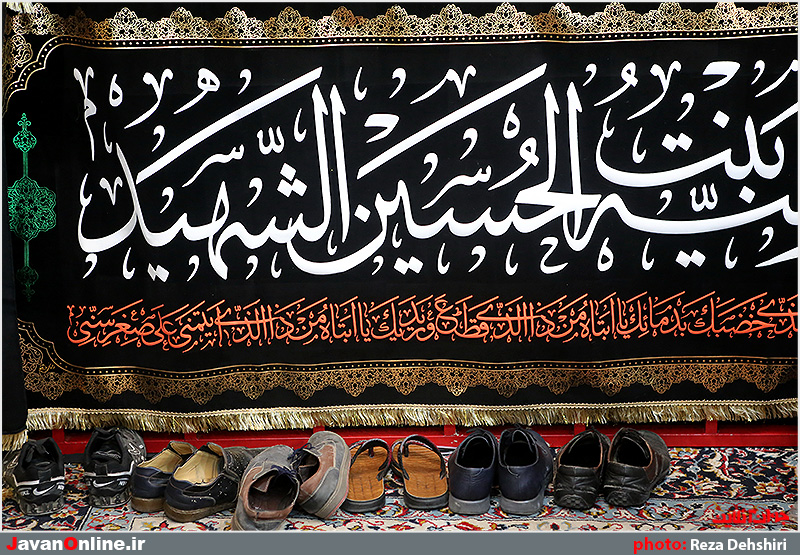 ـيّه بنت الحسين الشهيد
ـذي خضبك بدمائك يا ابتاه من ذا الذي قطع وريدك يا ابتاه من ذا الذي ايتمني علی صغر سني
جوان آنلاین
JavanOnline.ir
photo: Reza Dehshiri